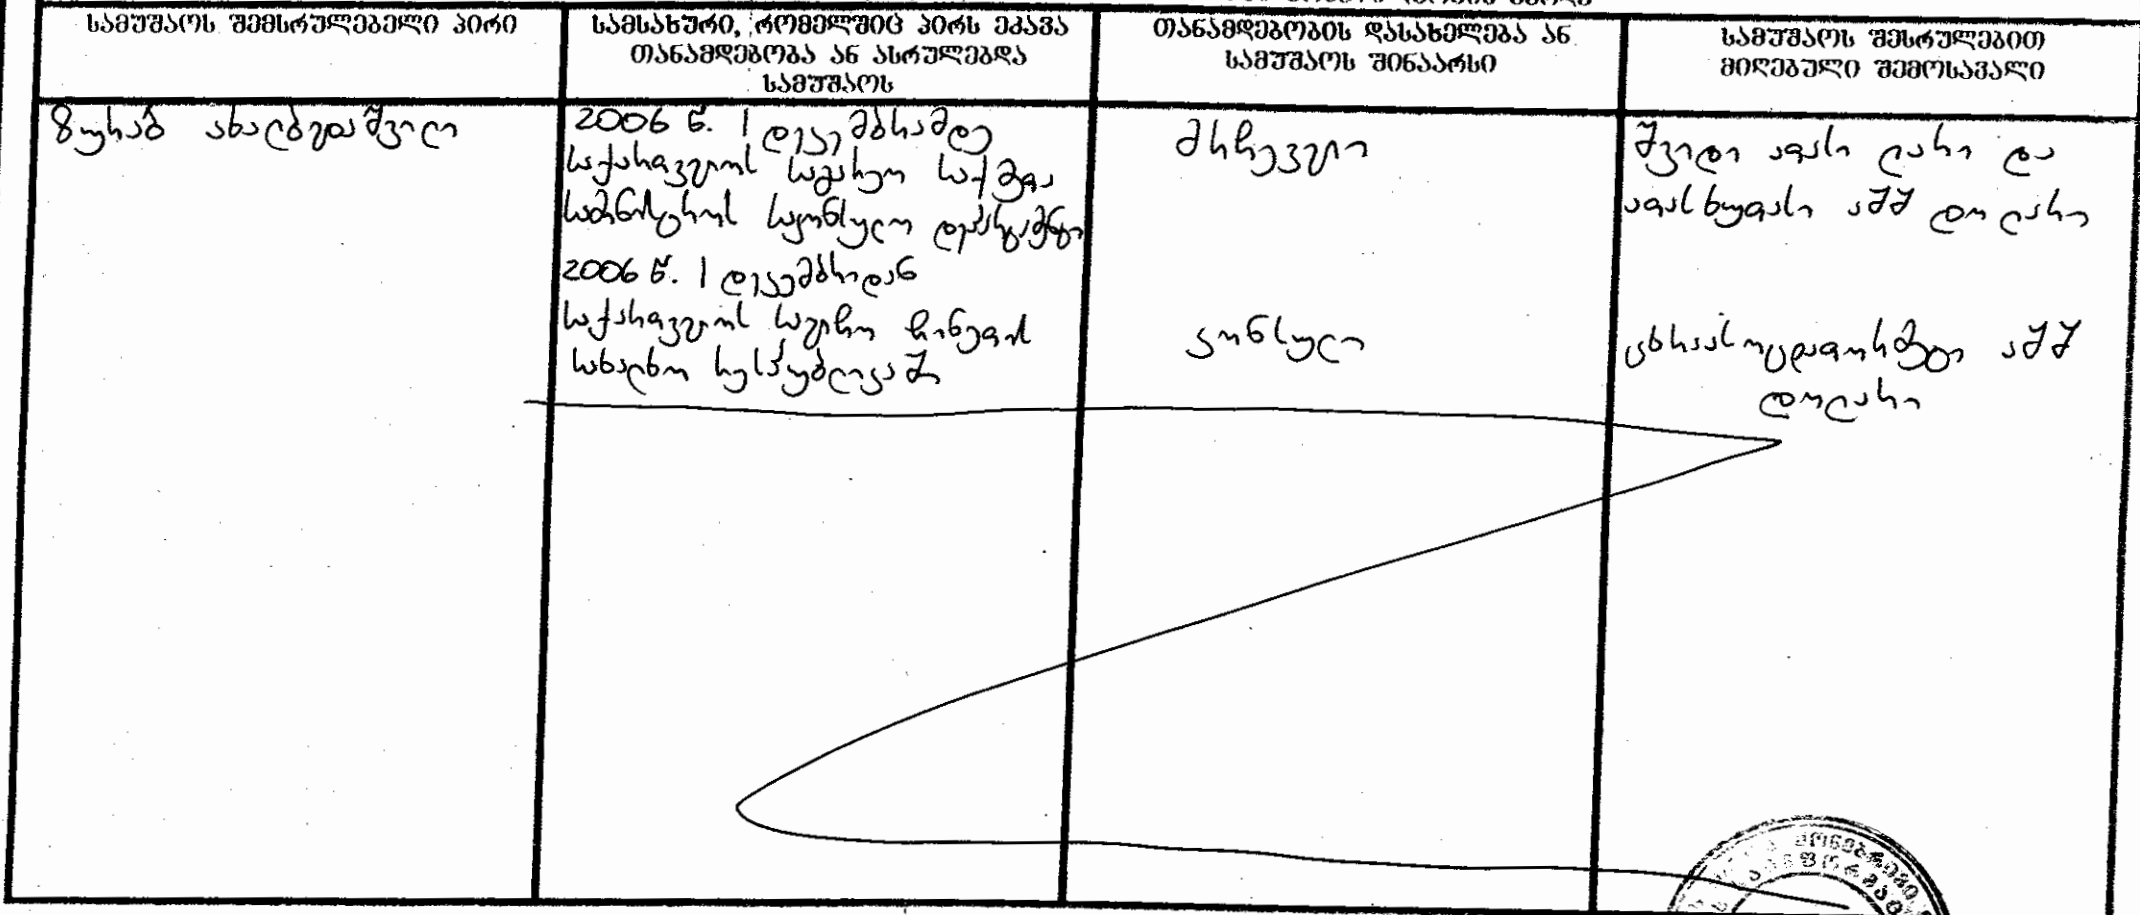 სამუშაოს შემსრულებელი პირი
სამსახური, რომელშიც პირს ეკავა
თანამდებობა ან ასრულებდა
სამუშაოს
თანამდებობის დასახელება ან
სამუშაოს შინაარსი
სამუშაოს შესრულებით
მიღებული შემოსავალი
ზურაბ
2006 წ. 1 დეკემბრამდე
საქართველოს საგარეო საქმეთა
სამინისტროს საკონსულო დეპარტამენტი
2006 წ. 1 დეკემბრიდან
საქართველოს საელჩო ჩინეთის
სახალხო რესპუბლიკაში
მრჩეველი
კონსული
შვიდი ათასი ლარი და
ათასხუთასი აშშ დოლარი
ცხრაასოცდათორმეტი აშშ
დოლარი